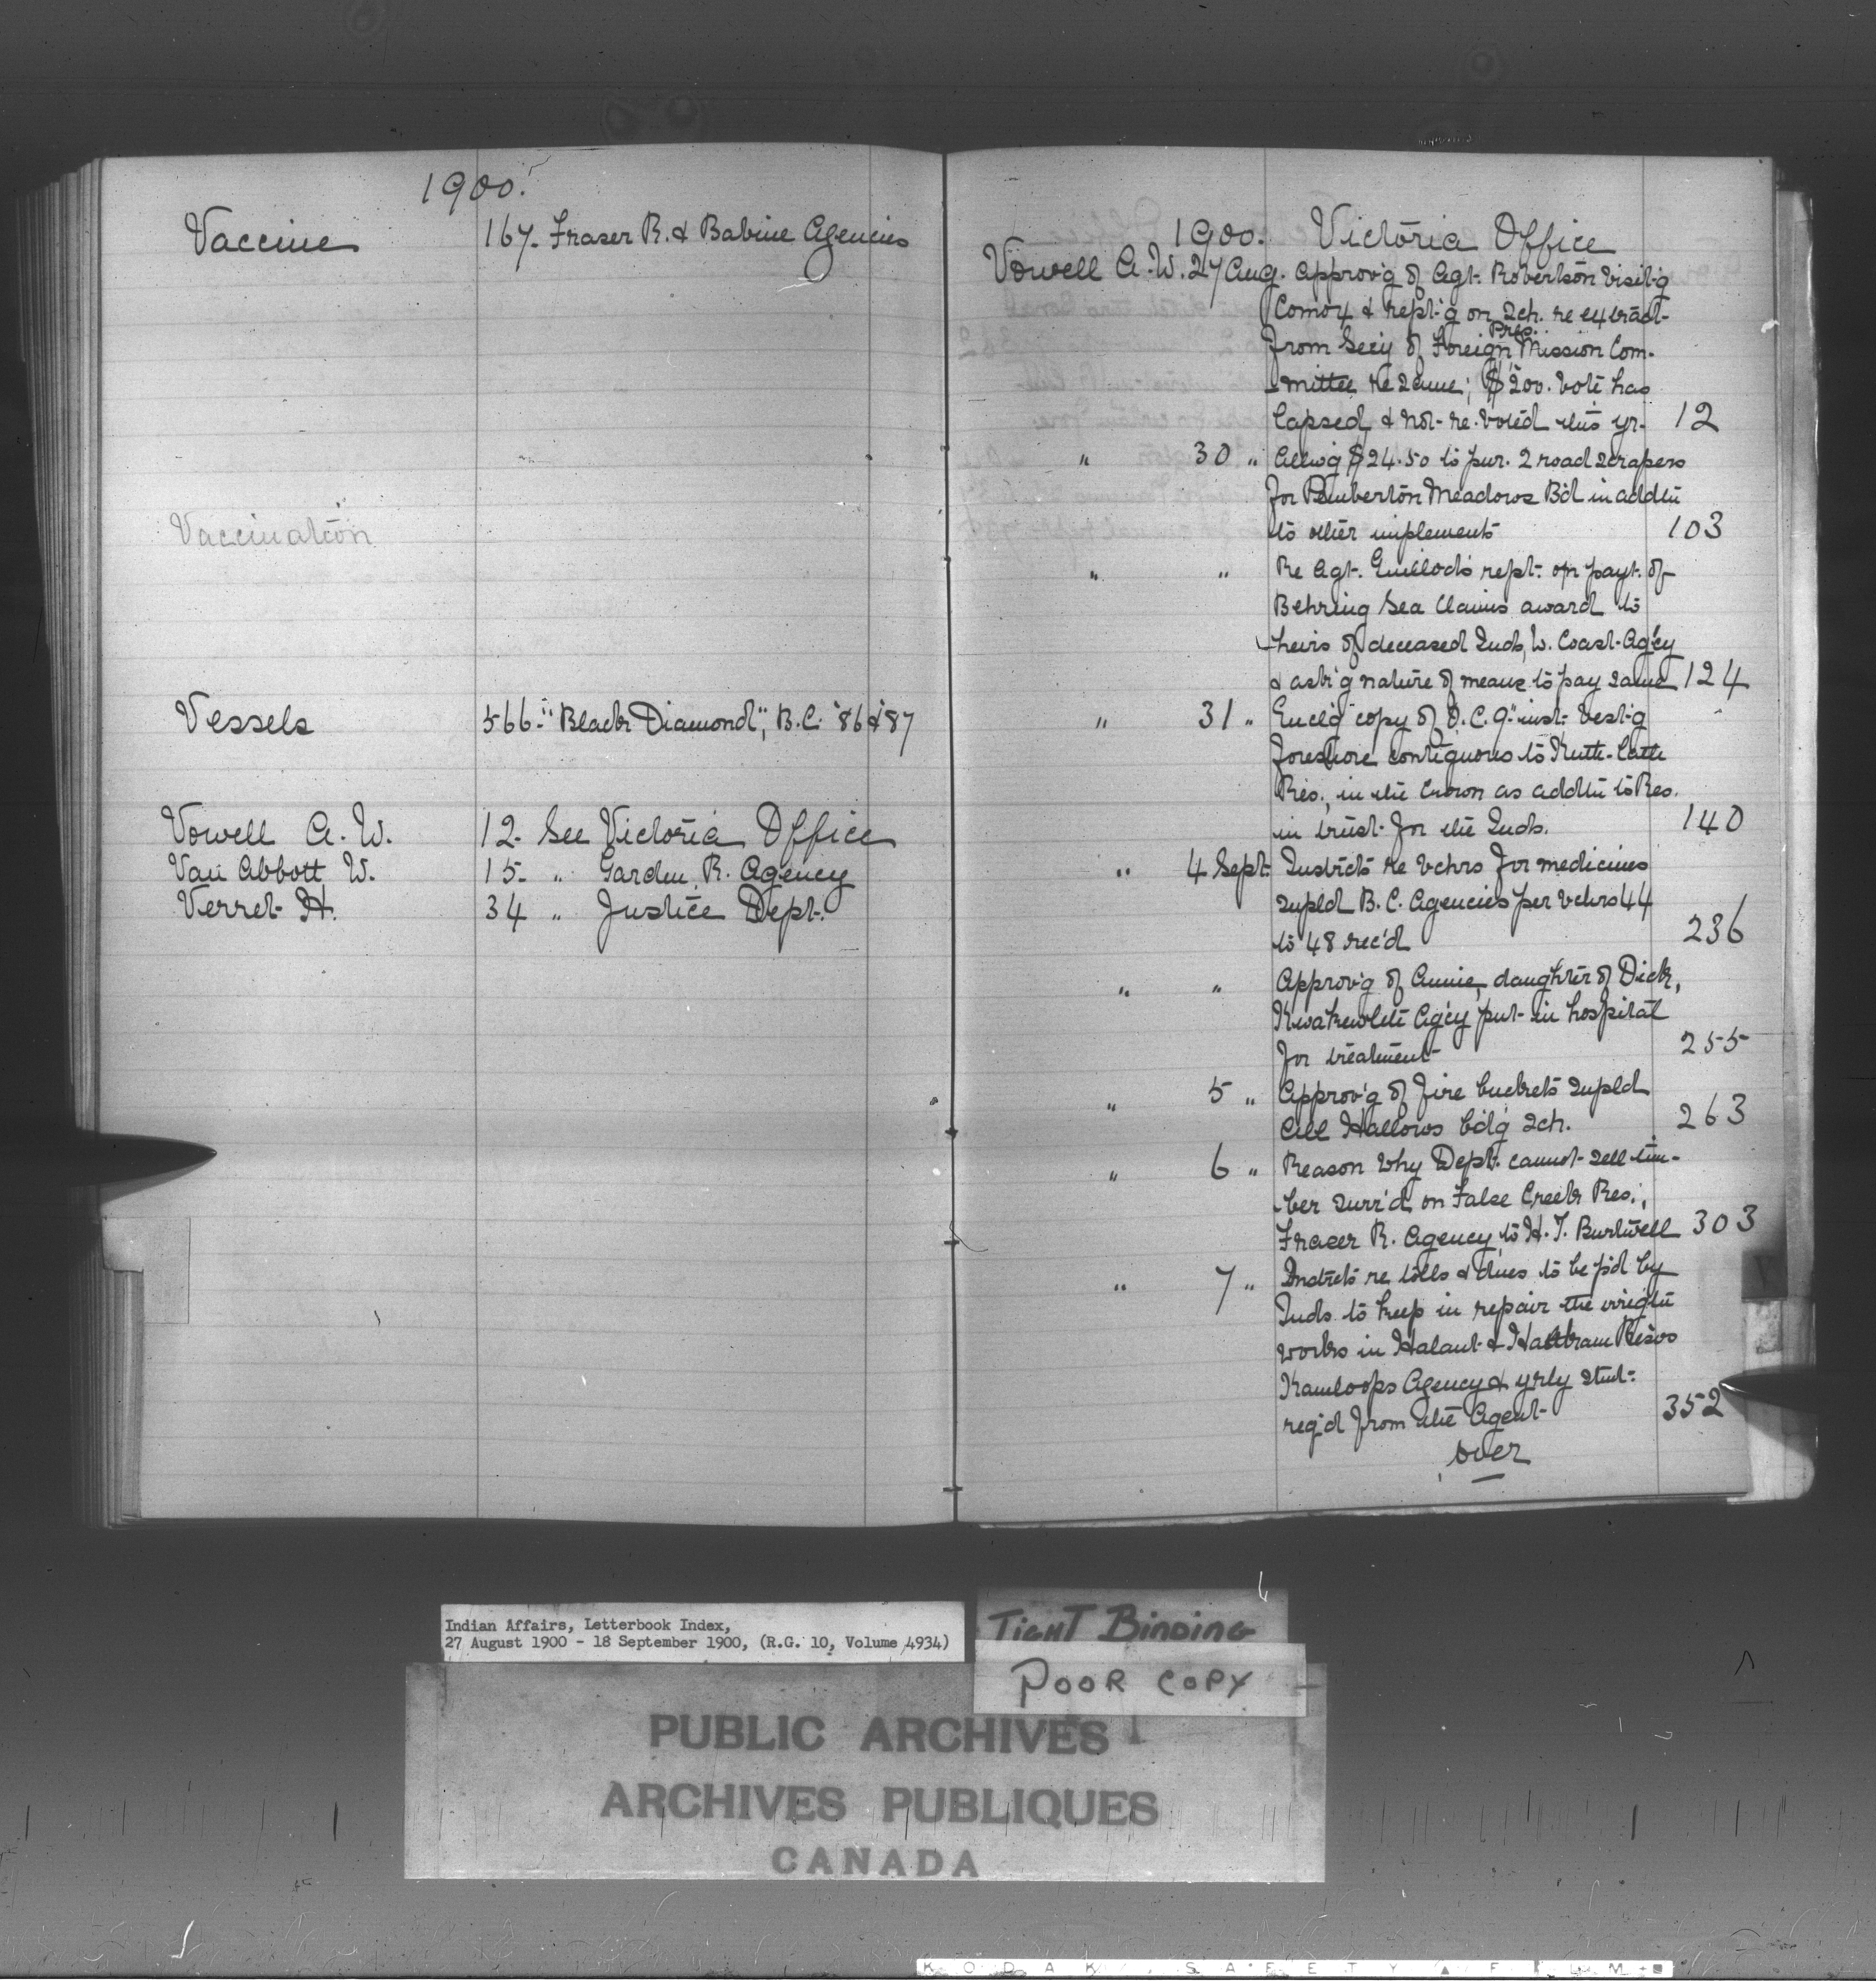 1900.
Vaccine 167. Fraser R. & Babine Agencies
Vaccination
Vessels 566. "Black Diamond", B.C. '86 & '87
Vowell A. W. 12. See Victoria Office
Van Abbott W. 15. " Garden R. Agency
Verret H. 34 " Justice Dept.
1900. Victoria Office
Vowell A. W. 27 Aug. Approv'g of Agt. Robertson visit'g
Comox & rept'g on sch. re extract
from Secy of Foreign Pres. Mission Com-
mittee re same; $200. vote has
lapsed & not re-voted this yr. 12
" 30 " Allow'g $24.50 to pur. 2 road scrapers
for Pemberton Meadows B'd in addtn
to other implements 103
" " Re Agt. Guillod's rept. on payt. of
Behring Sea Claims award to
heirs of deceased Inds, W. Coast Ag'cy
& ask'g nature of means to pay same 124
" 31 " Encl'g copy of O.C. 9" inst. vest'g
foreshore contiguous to Kutte-Catte
Res., in the Crown as addtn to Res.
in trust for the Inds. 140
" 4 Sept. Instrcts re vchrs for medicines
supld B.C. Agencies per vchrs 44
to 48 rec'd 236
" " Approv'g of Annie, daughter of Dick,
Kwakewlth Ag'cy put in hospital
for treatment 255
" 5 " Approv'g of fire buckets supld
All Hallows b'd'g sch. 263
" 6 " Reason why Dept. cannot sell tim-
ber surr'd on False Creek Res.,
Fraser R. Agency, to H. T. Burtwell 303
" 7 " Instrcts re tolls & dues to be p'd by
Inds. to keep in repair the irrigtn
works in Halaut & Resvs
Kamloops Agency & yrly stmt.
req'd from the Agent 352
over
Indian Affairs, Letterbook Index,
27 August 1900 - 18 September 1900, (R.G. 10, Volume 4934)
TIGHT BINDING
POOR COPY
PUBLIC ARCHIVES
ARCHIVES PUBLIQUES
CANADA
KODAK SAFETY ▲ FILM